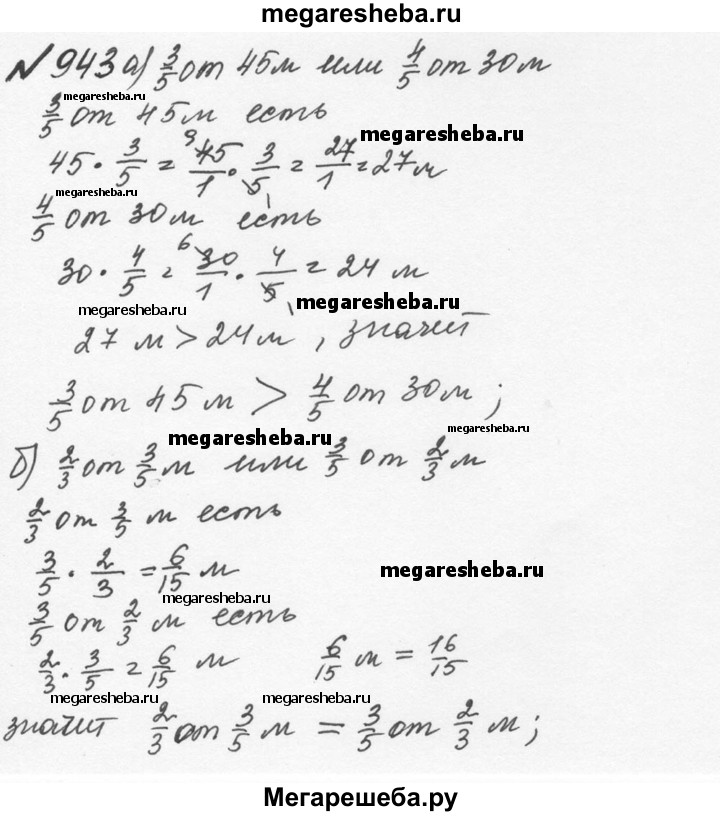 megaresheba.ru
№943 а) 3/5 от 45м или 4/5 от 30м
megaresheba.ru
3/5 от 45м есть
megaresheba.ru
45 · 3/5 = 9 45/1 · 3/5 1 = 27/1 = 27м
megaresheba.ru
4/5 от 30м есть
30 · 4/5 = 6 30/1 · 4/5 1 = 24 м
megaresheba.ru megaresheba.ru
27 м > 24м , значит
3/5 от 45 м > 4/5 от 30м ;
megaresheba.ru megaresheba.ru
б) 2/3 от 3/5 м или 3/5 от 2/3 м
2/3 от 3/5 м есть
3/5 · 2/3 = 6/15 м
megaresheba.ru
megaresheba.ru
3/5 от 2/3 м есть
2/3 · 3/5 = 6/15 м 6/15 м = 16/15
megaresheba.ru megaresheba.ru
значит 2/3 от 3/5 м = 3/5 от 2/3 м ;
Мегарешеба.ру